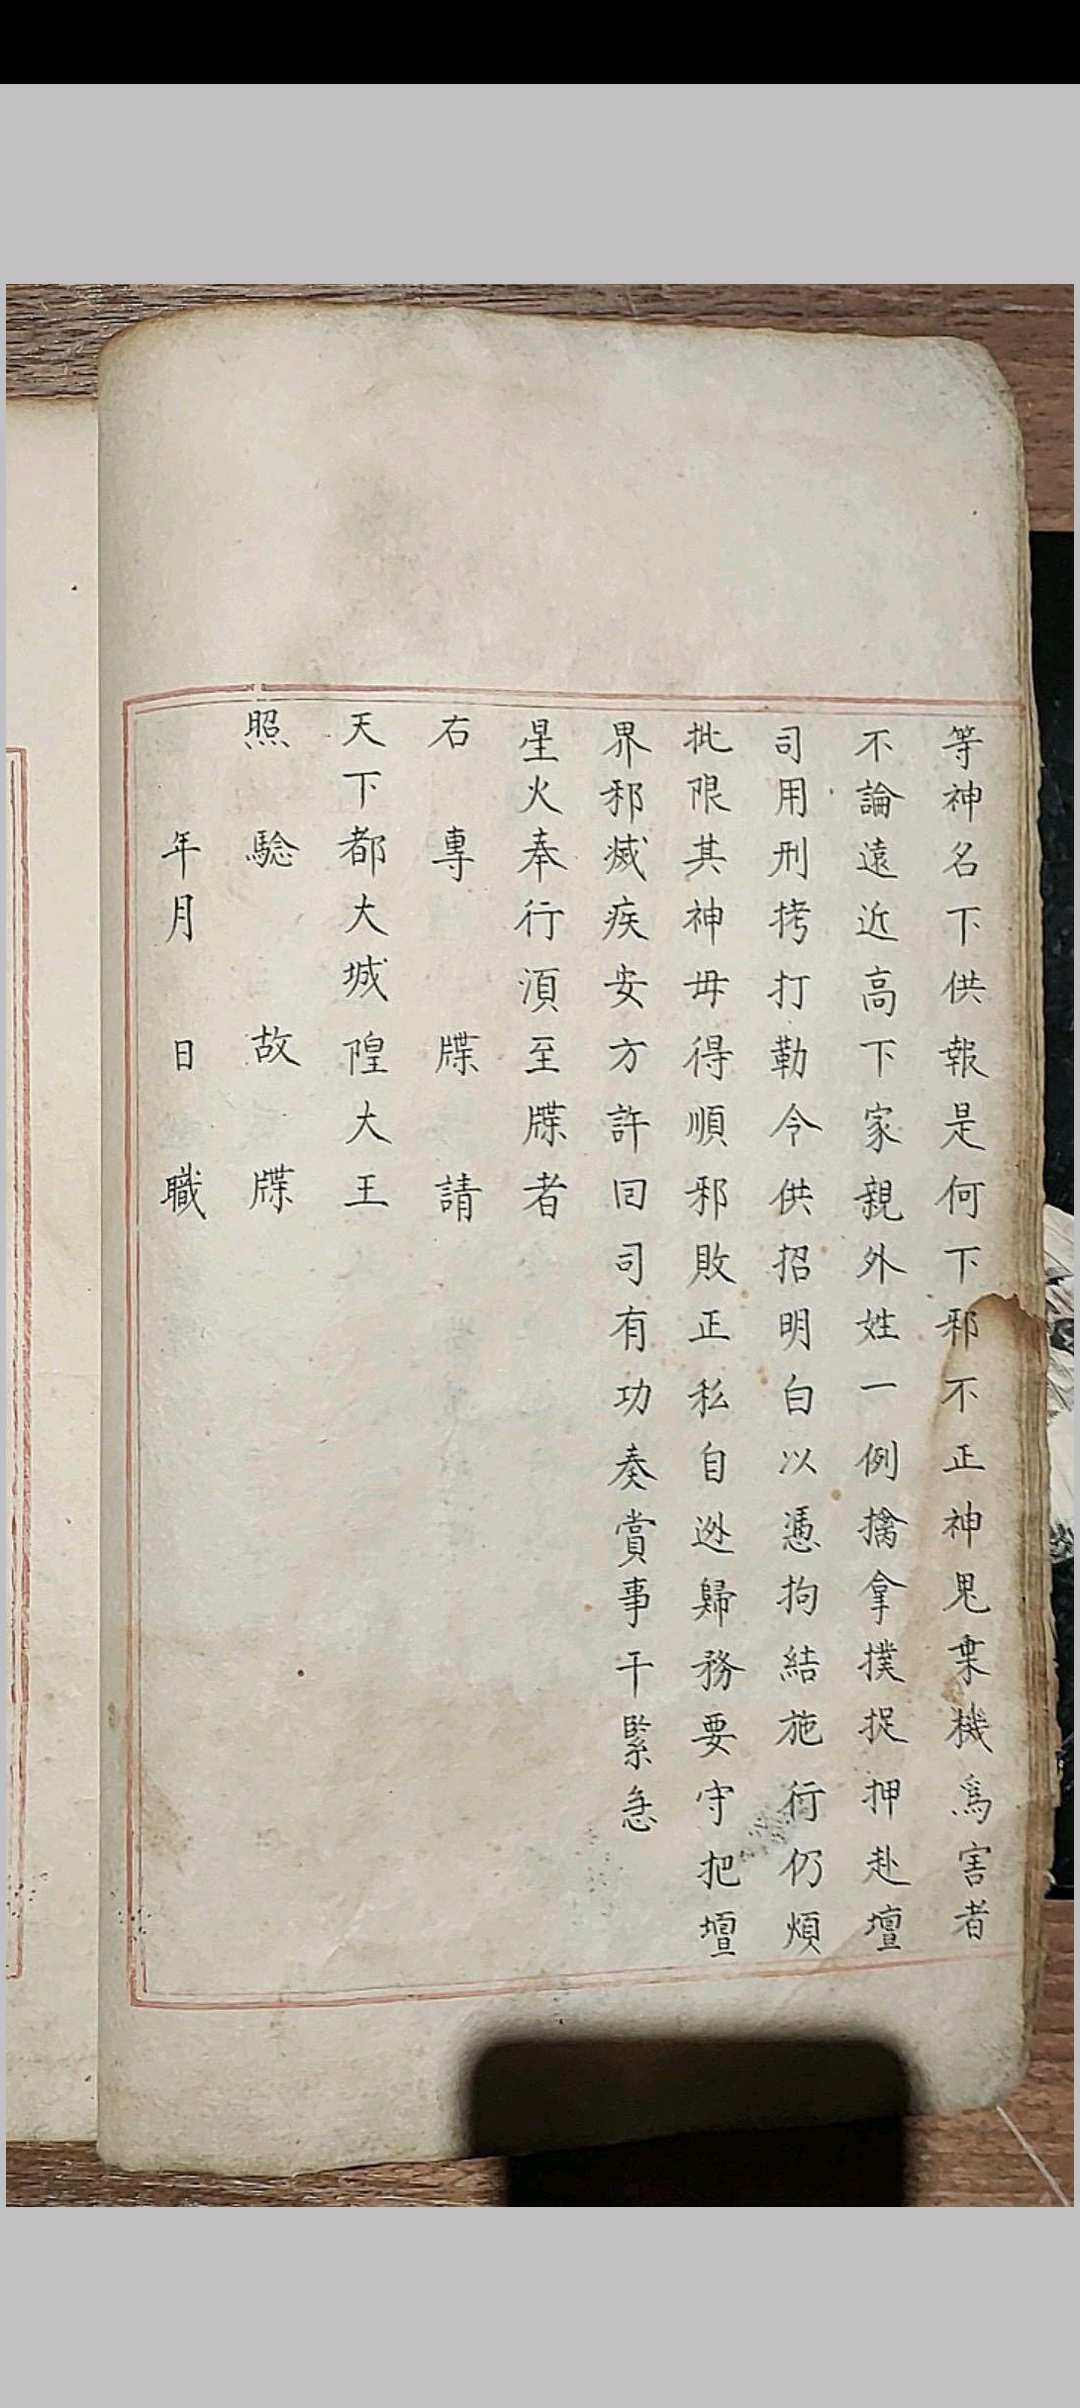 等神名下供報是何下邪不正神鬼乗機爲害者
不論遠近高下家親外姓一例擒拿撲捉押赴壇
司用刑拷打勒令供招明白以憑拘結施行仍煩
批限其神毋得順邪敗正私自迯歸務要守把壇
界邪滅疾安方許囘司有功奏賞事干緊急
星火奉行湏至牒者
右專牒請
天下都大城隍大王
照騐故牒
年月日職